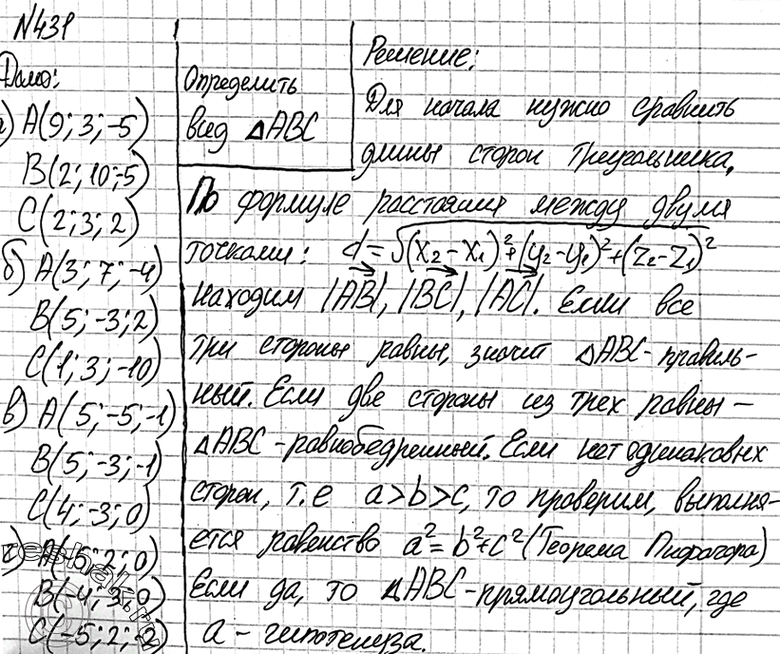 N431
Дано:
а) A(9; 3; -5)
B(2; 10; -5)
C(2; 3; 2)
б) A(3; 7; -4)
B(5; -3; 2)
C(1; 3; -10)
в) A(5; -5; -1)
B(5; -3; -1)
C(4; -3; 0)
г) A(-5; 2; 0)
B(-4; 3; 0)
C(-5; 2; -2)
Определить
вид △ABC
Решение:
Для начала нужно сравнить
длины сторон треугольника.
По формуле расстояния между двумя
точками: d = √(x₂-x₁)²+(y₂-y₁)²+(z₂-z₁)²
находим |AB|, |BC|, |AC|. Если все
три стороны равны, значит △ABC - правиль-
ный. Если две стороны из трех равны -
△ABC - равнобедренный. Если нет одинаковых
сторон, т.е a>b>c, то проверим, выполня-
ется равенство a²=b²+c² (Теорема Пифагора)
Если да, то △ABC - прямоугольный, где
a - гипотенуза.